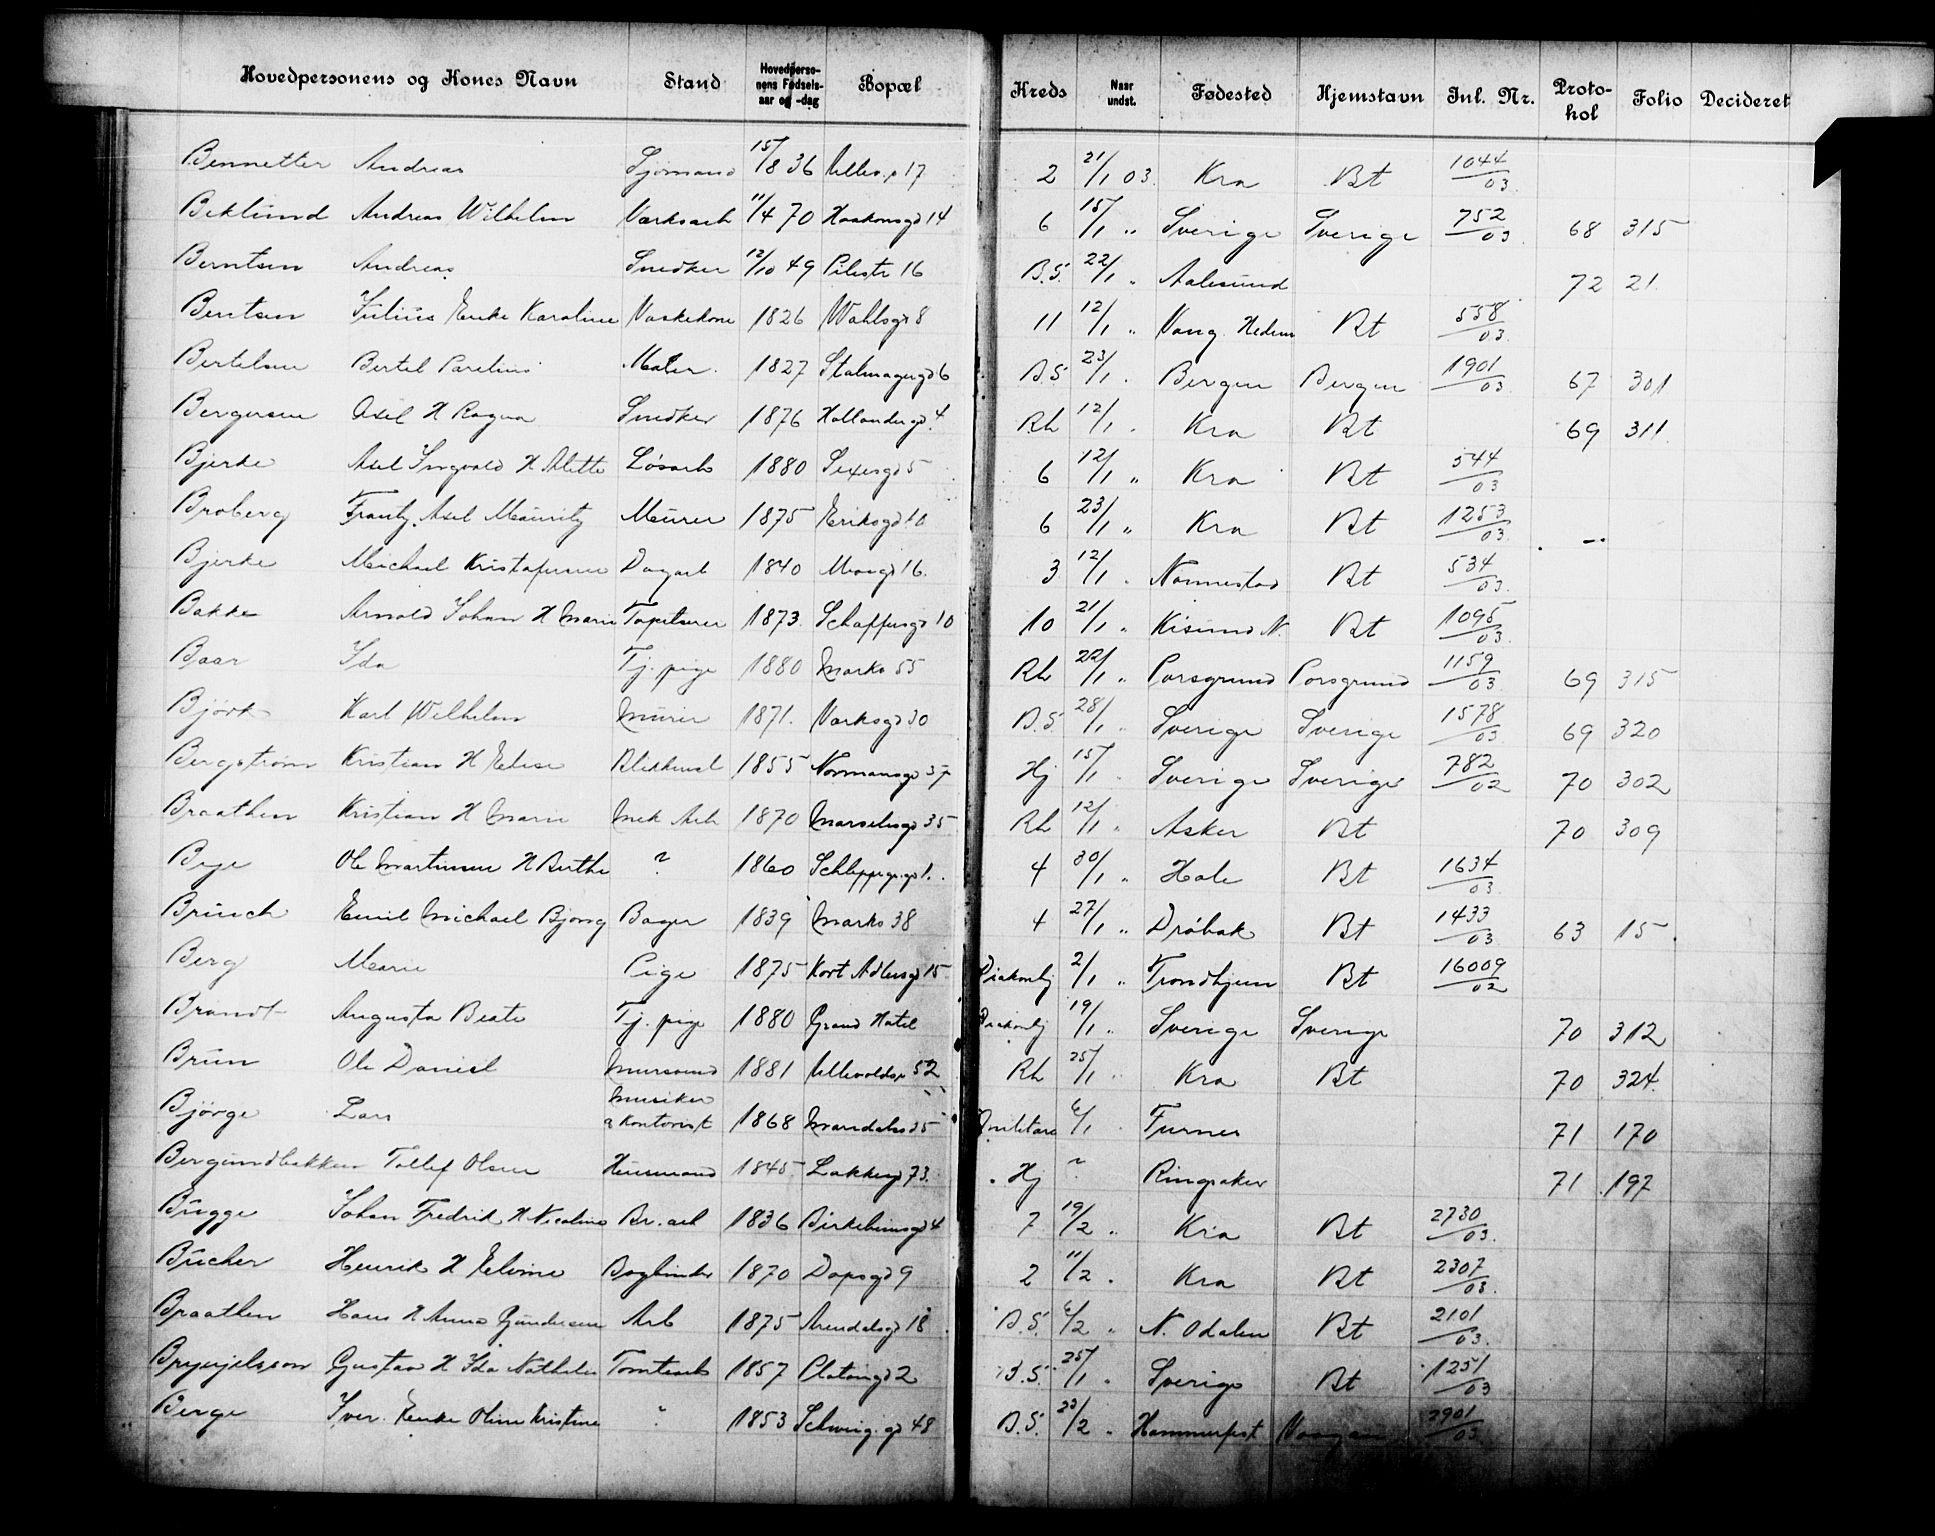 Hovedpersonens og Kones Navn Stand Hovedperso-nens Fødsels-aar og -dag Bopæl Kreds Naar undst. Fødested Hjemstavn Inl. Nr. Proto-kol Folio Decideret
Bennetter Andreas Sjømand 15/8 36 17 2 21/1 03. Kra Bt 1044/03.
Beklund Andreas Wilhelm Værksarb 11/4 70 Haakonsgd 14 6 15/1 " Sverige Sverige 752/03 68 315
Berntsen Andreas Snedker 12/10 49 Pilestr 16 B.S. 22/1 " Aalesund 72 21.
Bentsen Julius Enke Karoline Vaskekone 1826 Wahlsgd 8 11 12/1 " Vang. Hedem Bt 558/03.
Bertelsen Bertel Parelius Maler. 1827 6 B.S 23/1 . Bergen Bergen 1901/03 67 301
Bergersen Axel H Ragna Snedker 1876 Hollendergd. 4 Rh 12/1 . Kra Bt 69 311
Bjerke Axel Ingvald H Alette Løsarb 1880 Sexesgd 5 6 12/1 " Kra Bt 544/03
Broberg Frantz. Axel Mauritz Murer 1875 Eriksgd 10 6 23/1 " Kra Bt 1253/03.
Bjerke Michael Kristofersen Dagarb 1840 Mosgd 16. 3 12/1 . Bt 534/03.
Bakke Arnold Johan H Marie Tapetserer 1873. 10 10 21/1 " Bt 1095/03.
Baar Ida Tj. pige 1880 Markv 55 Rh 22/1 " Porsgrund Porsgrund 1159/03 69 315
Björk Karl Wilhelm Murer 1871. Verksgd 30 B.S 28/1 " Sverige Sverige 1578/03. 69 320
Bergström Kristian H Elise Blikkensl 1855 Normansgd Hj 15/1 . Sverige Sverige 782/02 70 302
Braathen Kristian H Marie Mek Arb 1870 Marselisgd 35 Rh 12/1 " Asker Bt 70 309
Bye Ole Martinsen H Berthe ? 1860 Schleppegr.gd 1. 4 30/1 " Hole Bt 1634/03.
Brunch Emil Michael Bager 1839 Markv 38 4 27/1 " Drøbak Bt 1433/03. 63 15.
Berg Marie Pige 1875 Kort Adlersgd 15 Diakonhj 2/1 " Trondhjem Bt 16009/02
Brandt Augusta Beate Tj. pige 1880 Grand Hotel Diakonhj 19/1 " Sverige Sverige 70 312
Brun Ole Daniel Mursvend 1881 Ullevoldsv 52 Rh 25/1 " Kra Bt 70 324.
Bjørge Lars Musiker & Kontorist 1868 Mandalsgd 5 Militære 6/1 . Furnes 71 170
Bergundbakken Tollef Olsen Husmand 1845 Lakkegd 73. Hj ? Ringsaker 71 197
Bugge Johan Fredrik H Nicoline Br. arb 1836 Birkebeinsgd 4 7 19/2 " Kra Bt 2730/03.
Bucher Henrik H Elvine Bogbinder 1870 Dopsgd 9 2 11/2 . Kra Bt 2307/03.
Braathen Hans H Anna Gundersen Arb 1875 Arendalsgd 18 B.S. 6/2 " N. Odalen Bt 2101/03.
Gustav H Ida Tomtearb 1857 Platousgd 2 B.S. 25/1 " Sverige Bt 1251/03
Berge Iver. Enke Oline Kristine " 1853 Schweig.gd 48 B.S. 23/2 " Hammerfest 2901/03